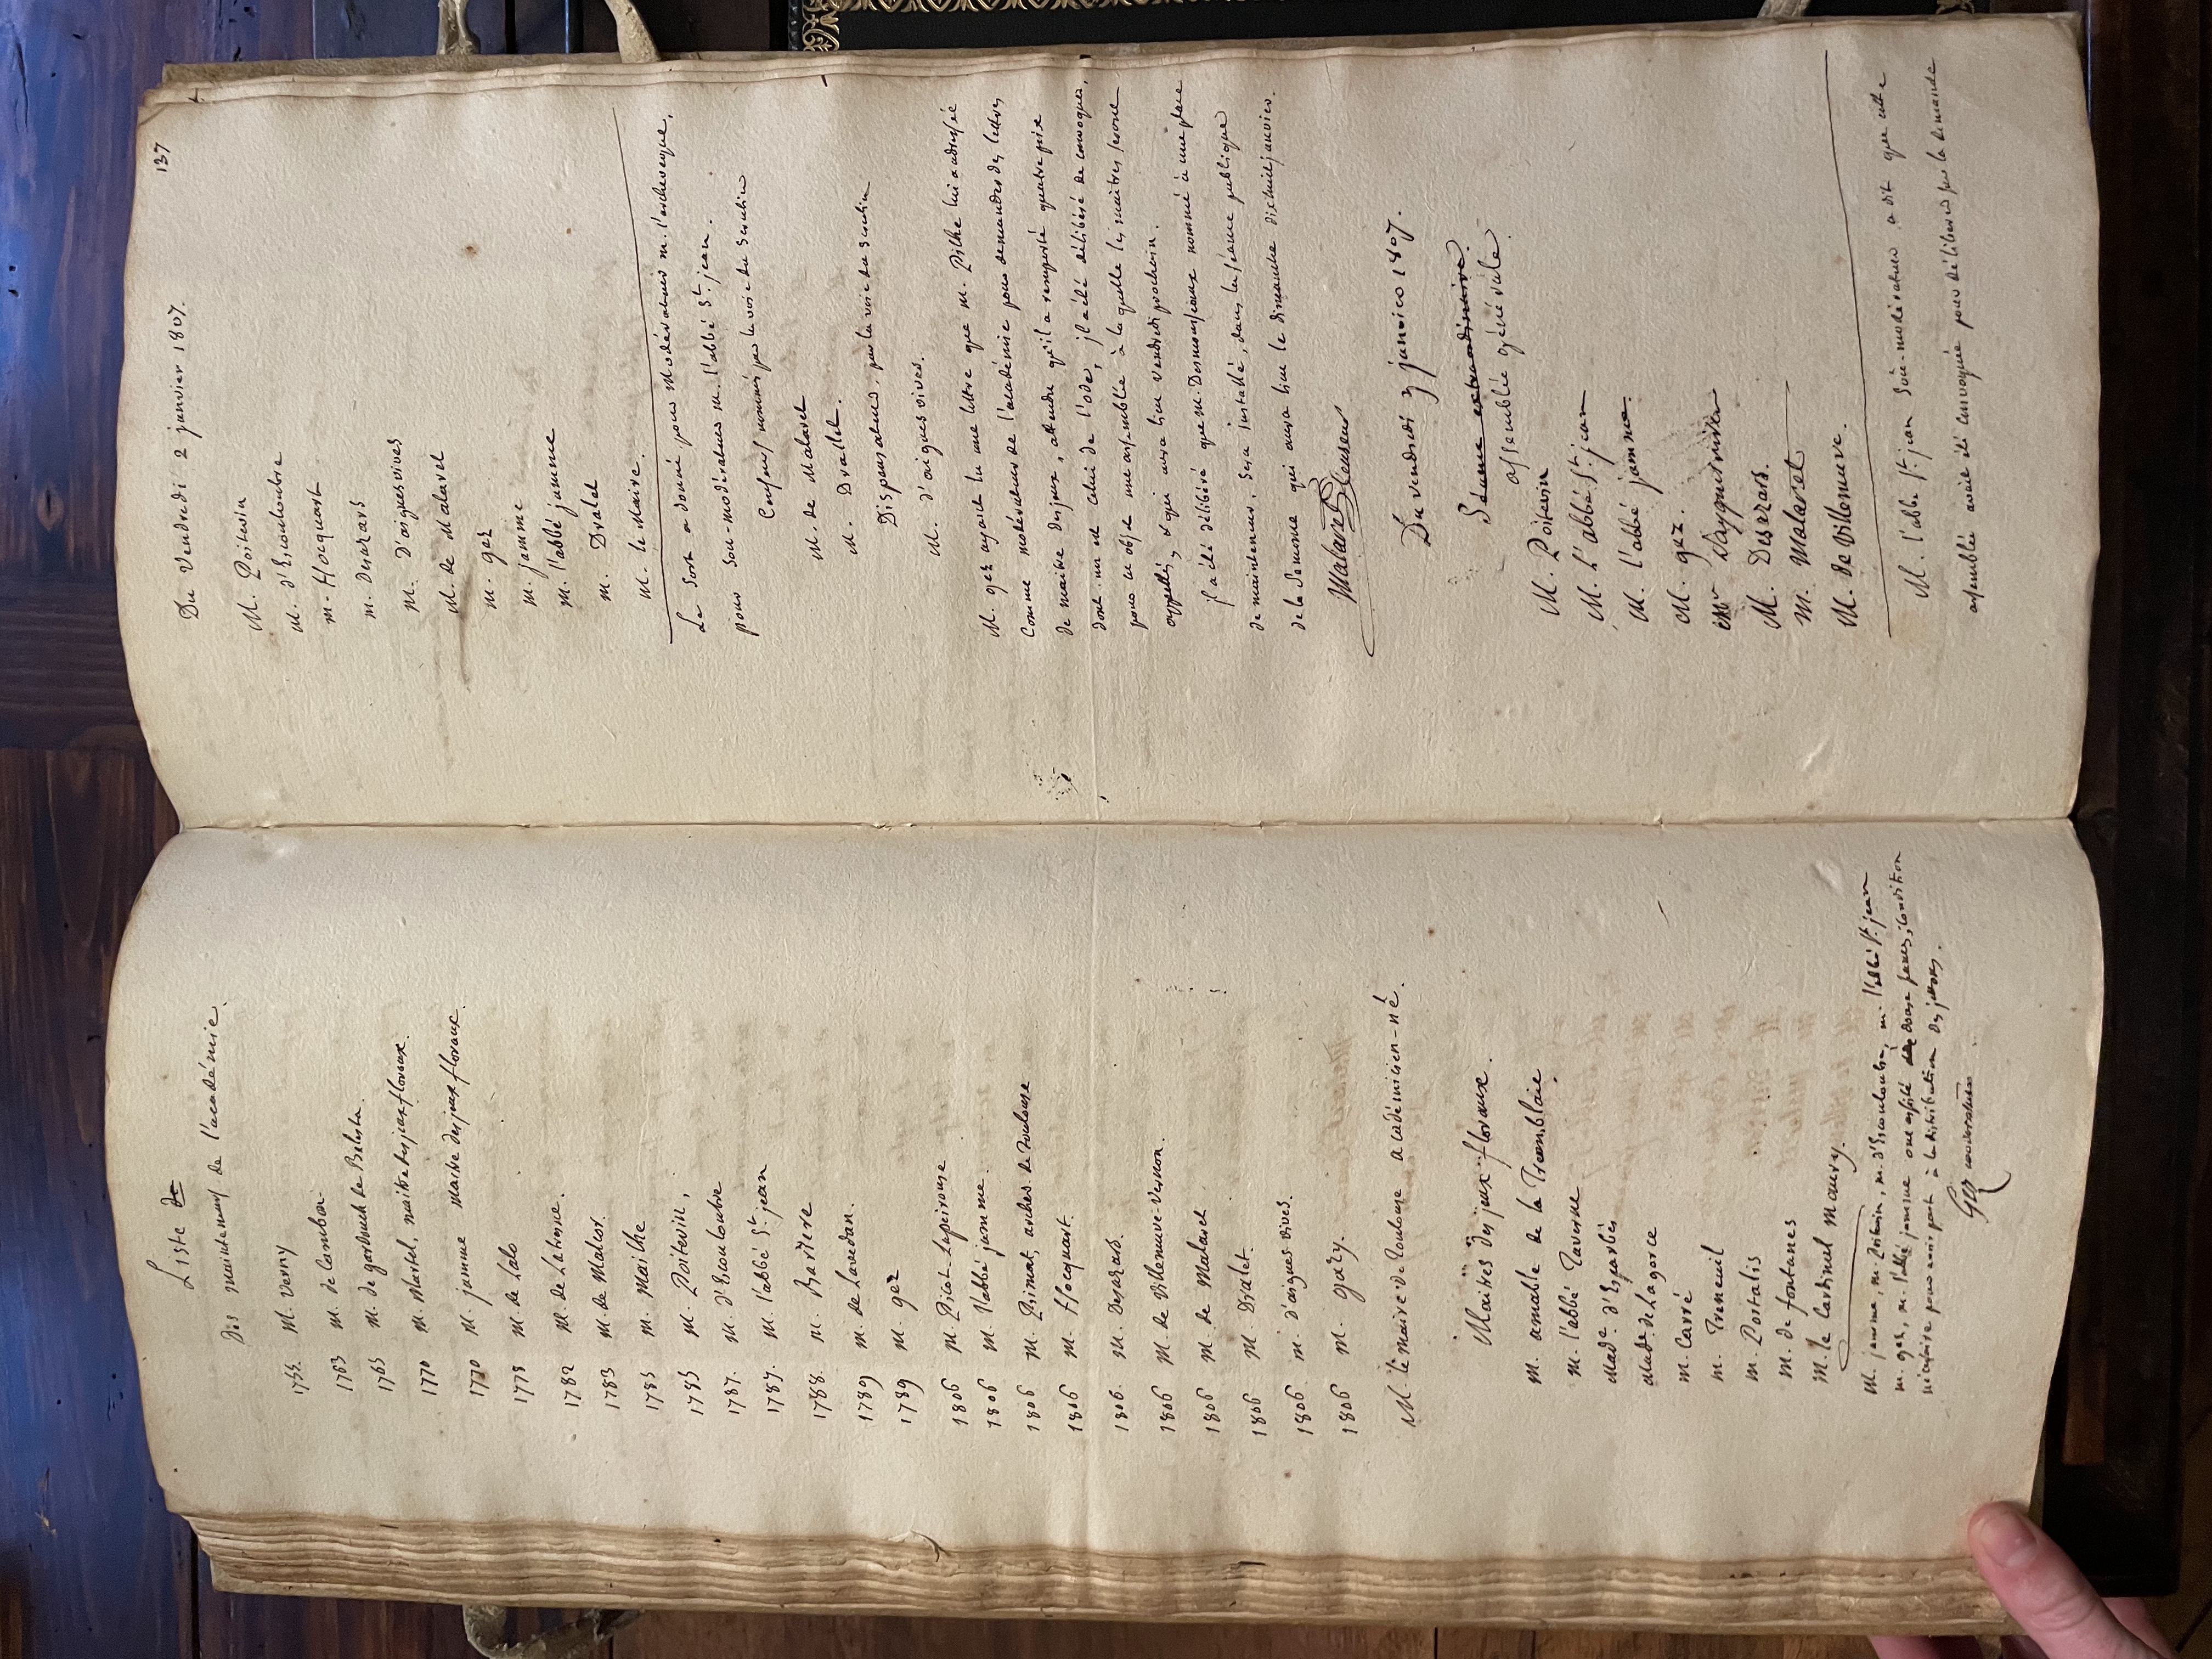 Liste de
des mainteneurs de l'académie.
1755. M. Verny
1763 M. de Cambon.
1765 M. de gardouch de Belesta.
1770 M. Martel, maitre des jeux floraux.
1770 M. jamme maitre des jeux floraux.
1778 M. de Lalo
1782 M. de Latresne.
1783 M. de Malcor.
1785 M. Mailhe
1785 M. Poitevin,
1787. M. d'Escouloubre
1787. M. l'abbé St. jean
1788. M. Barère
1789 M. de Lavedan.
1789 M. gez
1806 M. Picot-Lapeirouse
1806 M. l'abbé jamme.
1806 M. Primat, archev. de Toulouse
1806 M. Hocquart.
1806. M. Desazars.
1806 M. de Villeneuve-Vernon.
1806 M. de Malaret
1806 M. Dralet.
1806 M. d'aigues vives.
1806 M. gary.
M. le maire de Toulouse académicien-né.
Maitres des jeux floraux.
M. amable de la Tremblaie.
M. l'abbé Taverne
Made. d'Esparbès
Made. de Lagorce
M. Carré
M. Treneuil
M. Portalis
M. de fontanes
M. le Cardinal Maury.
M. jamme, M. Poitevin, M. d'Escouloubre, M. l'abbé St. jean
M. gez, M. l'abbé jamme ont assisté douze fauxes, condition
nécessaire pour avoir part à la distribution des jettons.
Gez moderateur
137
Du Vendredi 2 janvier 1807.
M. Poitevin
M. d'Escouloubre
M. Hocquart
M. Desazars
M. D'aiguesvives
M. de Malaret
M. gez
M. jamme
M. l'abbé jamme
M. Dralet
M. le Maire.
Le Sort a donné pour Modérateur M. l'archeveque,
pour Sou-modérateur M. l'abbé St. jean.
Censeurs nommés par la voie du Scrutin
M. de Malaret
M. Dralet.
Dispensateur, par la voie du Scrutin
M. d'aigues vives.
M. gez ayant lu une lettre que M. Pilhe lui a adressée
Comme modérateur de l'académie pour demander des lettres
de maitre des jeux, attendu qu'il a remporté quatre prix
dont un est celui de l'ode, il a été délibéré de convoquer,
pour cet objet une assemblée à laquelle les maitres seront
appellés, & qui aura lieu vendredi prochain.
il a été délibéré que M. Desmousseaux nommé à une place
de mainteneur, sera installé, dans la séance publique
de la Semonce qui aura lieu le dimanche dixhuit janvier.
Malaret Censeur
Du vendredi 9 janvier 1807.
Séance extraordinaire.
assemblée générale.
M. Poitevin
M. L'abbé St. jean
M. l'abbé jamme.
M. gez.
Mr Daiguesvives
M. Desazars.
M. Malaret
M. de Villeneuve.
M. l'abbé St. jean Sous-modérateur a dit que cette
assemblée avait été convoquée pour délibérer sur la demande